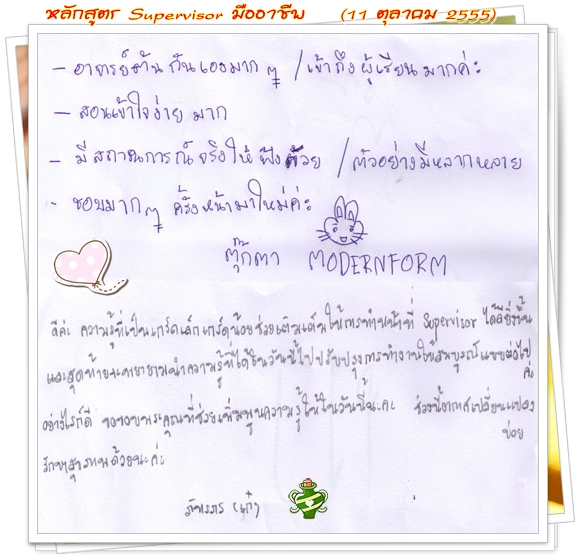 หลักสูตร Supervisor มืออาชีพ (11 ตุลาคม 2555)
- อาจารย์ต้น กันเองมาก ๆ / เข้าถึงผู้เรียนมากค่ะ
- สอนเข้าใจง่าย มาก
- มีสถานการณ์จริงให้ฟังด้วย / ตัวอย่างมีหลากหลาย
- ชอบมาก ๆ ครั้งหน้ามาใหม่ค่ะ
ตุ๊กตา MODERNFORM
ดีค่ะ ความรู้ที่เป็นเกร็ดเล็กเกร็ดน้อยช่วยเติมเต็มให้การทำหน้าที่ Supervisor ได้ดียิ่งขึ้น
และสุดท้ายจะพยายามนำความรู้ที่ได้ในวันนี้ไปปรับปรุงการทำงานให้สมบูรณ์แบบต่อไป
ค่ะ
อย่างไรก็ดี ขอขอบพระคุณที่ช่วยเพิ่มพูนความรู้ให้ในวันนี้นะคะ ช่วงนี้อากาศเปลี่ยนแปลง
บ่อย
รักษาสุขภาพด้วยนะคะ